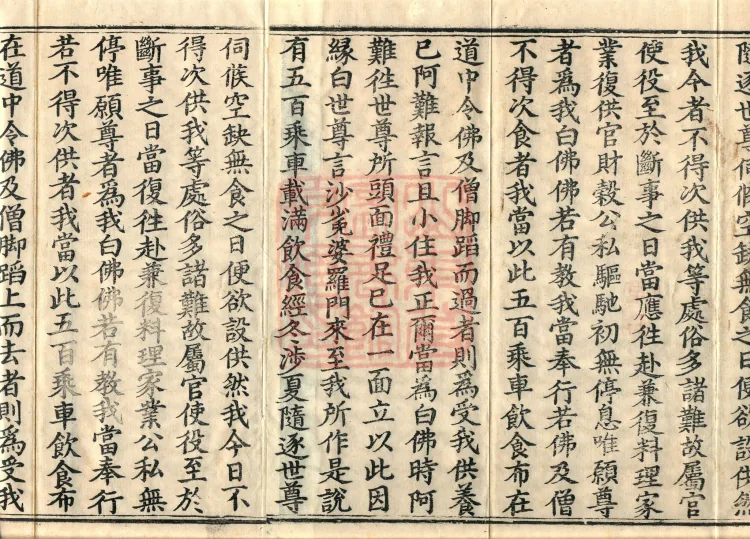 隨逐世尊伺候空缺無食之日便欲設供然
我今者不得次供我等處俗多諸難故屬官
使役至於斷事之日當應往赴兼復料理家
業復供官財穀公私驅馳初無停息唯願尊
者為我白佛佛若有教我當奉行若佛及僧
不得次食者我當以此五百乘車飲食布在
道中令佛及僧脚蹈而過者則為受我供養
已阿難報言且小住我正爾當為白佛時阿
難往世尊所頭面禮足已在一面立以此因
緣白世尊言沙毞婆羅門來至我所作是說
有五百乘車載滿飲食經冬涉夏隨逐世尊
伺候空缺無食之日便欲設供然我今日不
得次供我等處俗多諸難故屬官使役至於
斷事之日當復往赴兼復料理家業公私無
停唯願尊者為我白佛佛若有教我當奉行
若不得次供者我當以此五百乘車飲食布
在道中令佛及僧脚蹈上而去者則為受我